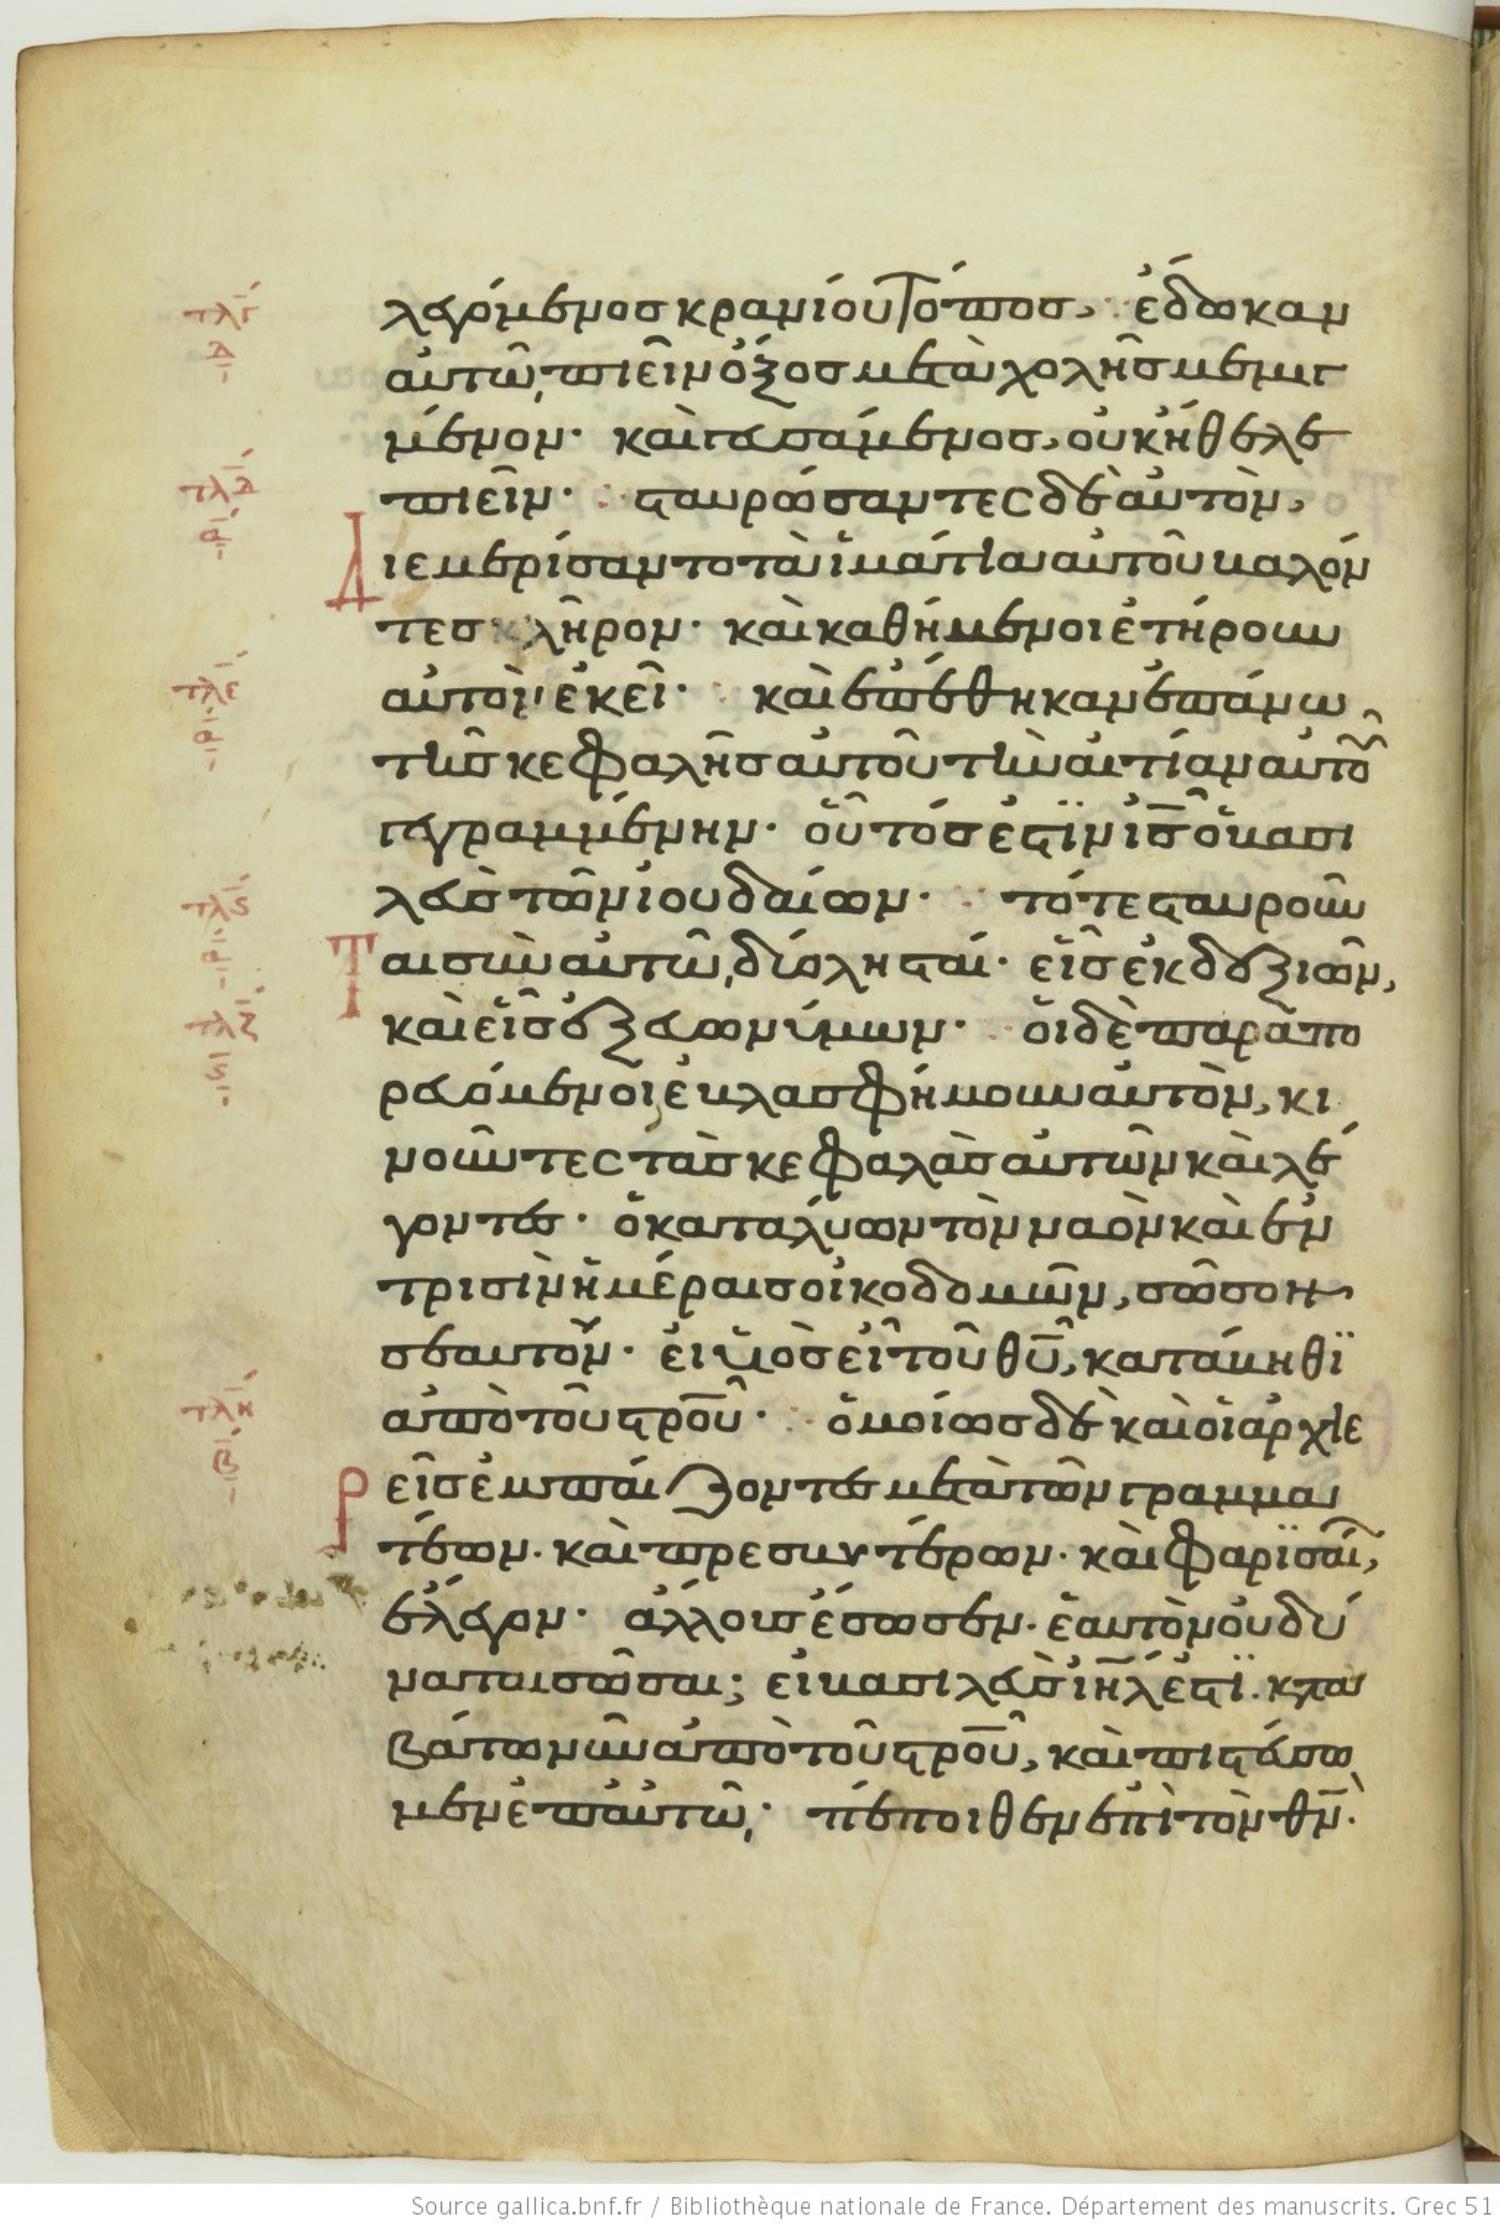 τλγ
δ
λεγόμενος κρανίου Τόπος, ἔδωκαν
αὐτῶ, πιεῖν ὄξος μετὰ χολῆς μεμιγ
μένον· καὶ γευσάμενος, οὐκ ἤθελε
τλδ
α
πιεῖν· σταυρώσαντες δὲ αὐτὸν,
Διεμερίσαντο τὰ ἱμάτια αὐτοῦ βαλόν
τες κλῆρον· καὶ καθήμενοι ἐτήρουν
τλε
α
αὐτὸν ἐκεῖ· καὶ ἐπέθηκαν ἐπάνω
τῆς κεφαλῆς αὐτοῦ τὴν αἰτίαν αὐτοῦ
γεγραμμένην· οὗτός ἐστϊν ις ὁ βασι
τλς
α
λεὺς τῶν ἰουδαίων· τότε σταυροῦν
Ται σὺν αὐτῶ, δύο λησταί· εἷς ἐκ δεξιῶν,
τλζ
ς
καὶ εἷς ἐξ εὐωνύμων· οἱ δὲ παραπο
ρευόμενοι ἐβλασφήμουν αὐτὸν, κι
νοῦντες τὰς κεφαλὰς αὐτῶν καὶ λέ
γοντες· ὁ καταλύων τὸν ναὸν καὶ ἐν
τρισὶν ἡμέραις οἰκοδομῶν, σῶσον
σεαυτον· εἰ υἱὸς εἶ τοῦ θυ, κατάβηθϊ
τλη
β
ἀπὸ τοῦ στροῦ· ὁμοίως δὲ καὶ οἱ ἀρχιε
Ρεῖς ἐμπαίζοντες μετὰ τῶν γραμμα
τέων· καὶ πρεσβυτέρων· καὶ φαρϊσαί,
ἔλεγον· ἄλλους ἔσωσεν· ἑαυτὸν οὐ δύ
ναται σῶσαι; εἰ βασιλεὺς ιηλ ἐστϊ. κατα
βάτω νῦν ἀπὸ τοῦ στροῦ, καὶ πιστεύσω
μεν ἐπ αὐτῶ· πέποιθεν ἐπὶ τὸν θν.